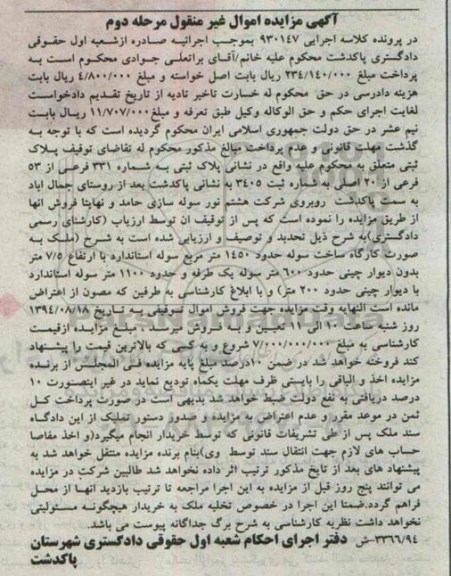 آگهی مزایده اموال غیر منقول مرحله دوم
در پرونده کلاسه اجرایی ۹۳۰۱۴۷ بموجب اجرائیه صادره ازشعبه اول حقوقی
دادگستری پاکدشت محکوم علیه خانم/آقای براتعلی جوادی محکوم است به
پرداخت مبلغ ۲۳۴/۱۴۰/۰۰۰ ریال بابت اصل خواسته و مبلغ ۴/۸۰۰/۰۰۰ ریال بابت
هزینه دادرسی در حق محکوم له خسارت تاخیر تادیه از تاریخ تقدیم دادخواست
لغایت اجرای حکم و حق الوکاله وکیل طبق تعرفه و مبلغ ۱۱/۷۰۷/۰۰۰ ریال بابت
نیم عشر در حق دولت جمهوری اسلامی ایران محکوم گردیده است که با توجه به
گذشت مهلت قانونی و عدم پرداخت مبالغ مذکور محکوم له تقاضای توقیف پلاک
ثبتی متعلق به محکوم علیه واقع در نشانی پلاک ثبتی به شماره ۳۳۱ فرعی از ۵۳
فرعی از ۲۰ اصلی به شماره ثبت ۳۴۰۵ به نشانی پاکدشت بعد از روستای جمال اباد
به سمت پاکدشت روبروی شرکت هشتم نور سوله سازی حامد و نهایتا فروش انها
از طریق مزایده را نموده است که پس از توقیف ان توسط ارزیاب (کارشنای رسمی
دادگستری)به شرح ذیل تحدید و توصیف و ارزیابی شده است به شرح (ملک به
صورت کارگاه ساخت سوله حدود ۱۴۵۰ متر مربع سوله استاندارد با ارتفاع ۷/۵ متر
بدون دیوار چینی حدود ۶۰۰ متر سوله یک طرفه و حدود ۱۱۰۰ متر سوله استاندارد
با دیوار چینی حدود ۲۰۰ متر) و با ابلاغ کارشناسی به طرفین که مصون از اعتراض
مانده است النهایه وقت مزایده جهت فروش اموال توقیفی به تاریخ ۱۳۹۴/۰۸/۱۸
روز شنبه ساعت ۱۰ الی ۱۱ تعیین و به فروش میرسد . مبلغ مزایده ازقیمت
کارشناسی به مبلغ ۷/۰۰۰/۰۰۰/۰۰۰ شروع و به کسی که بالاترین قیمت را پیشنهاد
کند فروخته خواهد شد در ضمن ۱۰درصد مبلغ پایه مزایده فی المجلس از برنده
مزایده اخذ و الباقی را بایستی ظرف مهلت یکماه تودیع نماید در غیر اینصورت ۱۰
درصد دریافتی به نفع دولت ضبط خواهد شد بدیهی است در صورت پرداخت کل
ثمن در موعد مقررو عدم اعتراض به مزایده و صدور دستور تملیک از این دادگاه
سند ملک پس از طی تشریفات قانونی که توسط خریدار انجام میگیرد(و اخذ مفاصا
حساب های لازم جهت انتقال سند توسط وی)بنام برنده مزایده منتقل خواهد شد به
پیشنهاد های بعد از تایخ مذکور ترتیب اثر داده نخواهد شد طالبین شرکت در مزایده
می توانند پنج روز قبل از مزایده به این اجرا مراجعه تا ترتیب بازدید انها از محل
فراهم گردد.ضمنا این اجرا در خصوص تخلیه ملک به خریدار هیچگونه مسئولیتی
نخواهد داشت نظریه کارشناسی به شرح برگ جداگانه پیوست می باشد.
۳۳۶۶/۹۴-ش دفتر اجرای احکام شعبه اول حقوقی دادگستری شهرستان
پاکدشت